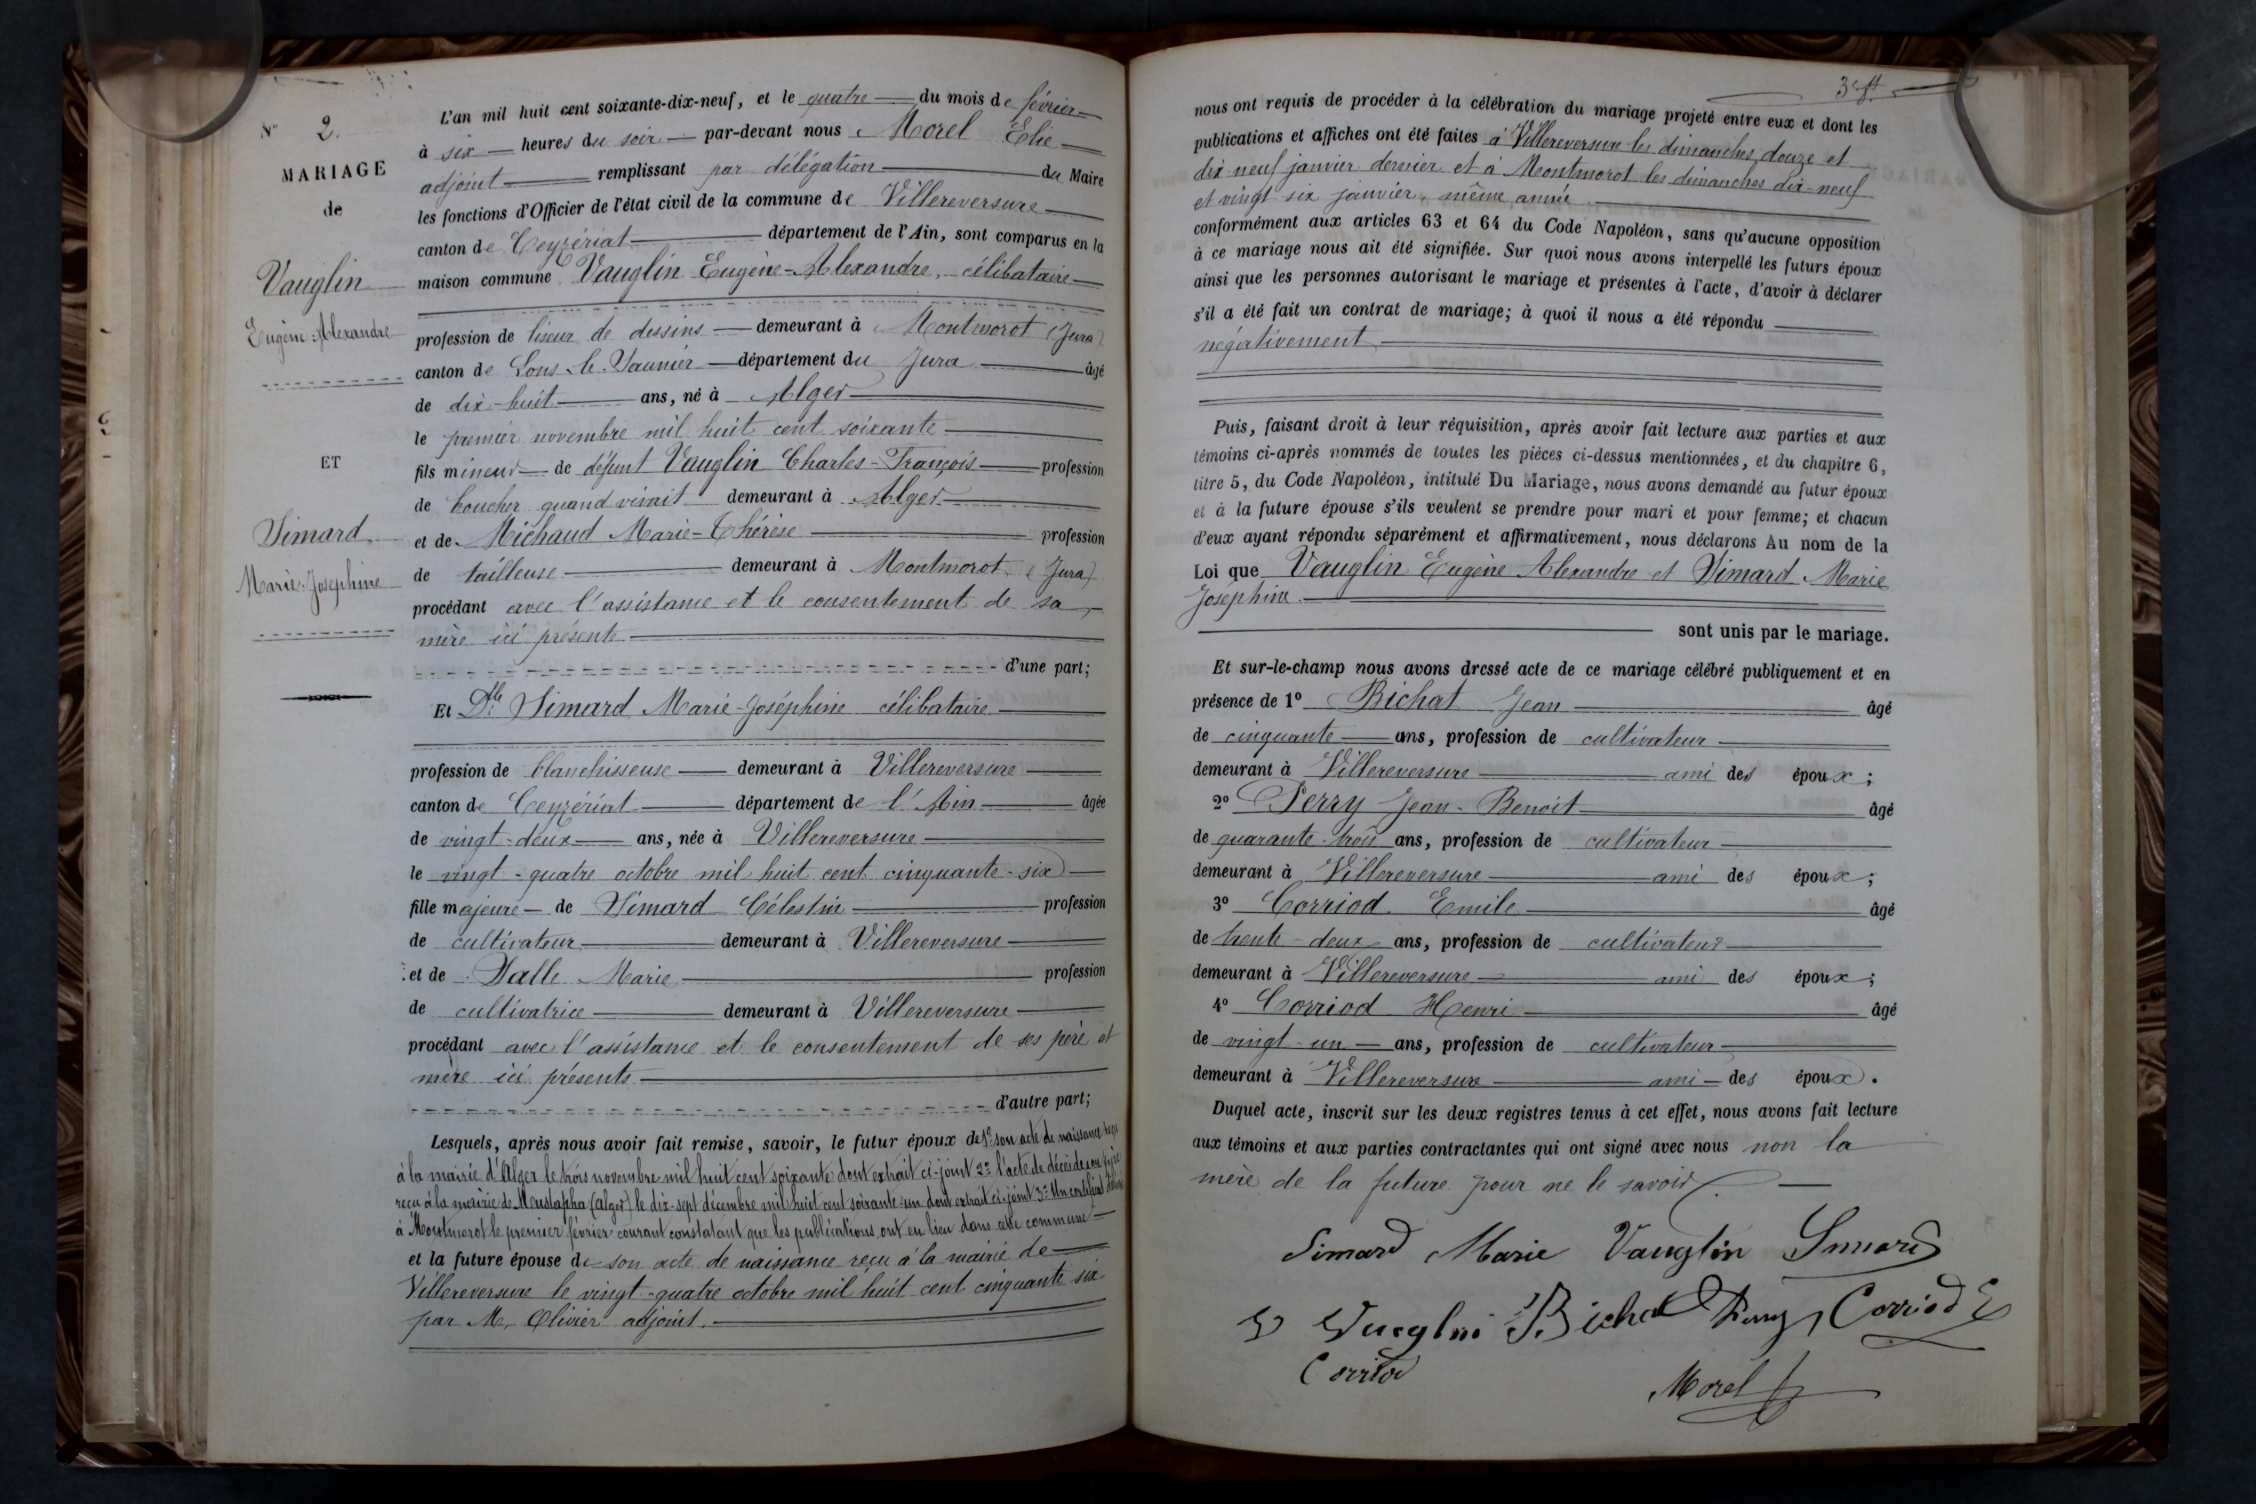 N° 2.
MARIAGE
de
Vauglin
Eugène-Alexandre
ET
Simard
Marie-Joséphine
L'an mil huit cent soixante-dix-neuf, et le quatre du mois de février
à six heures du soir par-devant nous Morel Elie
adjoint remplissant par délégation du Maire
les fonctions d'Officier de l'état civil de la commune de Villereversure
canton de Ceyzériat département de l'Ain, sont comparus en la
maison commune Vauglin Eugène-Alexandre, célibataire
profession de liseur de dessins demeurant à Montmorot (Jura)
canton de Lons-le-Saunier département du Jura âgé
de dix-huit ans, né à Alger
le premier novembre mil huit cent soixante
fils mineur de défunt Vauglin Charles-François profession
de boucher quand vivait demeurant à Alger
et de Michaud Marie-Thérèse profession
de tailleuse demeurant à Montmorot (Jura)
procédant avec l'assistance et le consentement de sa
mère ici présente
d'une part;
Et Dlle Simard Marie-Joséphine célibataire
profession de blanchisseuse demeurant à Villereversure
canton de Ceyzériat département de l'Ain âgée
de vingt-deux ans, née à Villereversure
le vingt-quatre octobre mil huit cent cinquante-six
fille majeure de Simard Célestin profession
de cultivateur demeurant à Villereversure
et de Dalle Marie profession
de cultivatrice demeurant à Villereversure
procédant avec l'assistance et le consentement de ses père et
mère ici présents
d'autre part;
Lesquels, après nous avoir fait remise, savoir, le futur époux de 1° son acte de naissance reçu
à la mairie d'Alger le trois novembre mil huit cent soixante dont extrait ci-joint 2° l'acte de décès de son père
reçu à la mairie de Moustapha (alger) le dix-sept décembre mil huit cent soixante-un dont extrait ci-joint 3° Un certificat délivré
à Montmorot le premier février courant constatant que les publications ont eu lieu dans cette commune
et la future épouse de son acte de naissance reçu à la mairie de
Villereversure le vingt-quatre octobre mil huit cent cinquante six
par M. Olivier adjoint.
nous ont requis de procéder à la célébration du mariage projeté entre eux et dont les
publications et affiches ont été faites à Villereversure les dimanches douze et
dix-neuf janvier dernier et à Montmorot les dimanches dix-neuf
et vingt six janvier, même année
conformément aux articles 63 et 64 du Code Napoléon, sans qu'aucune opposition
à ce mariage nous ait été signifiée. Sur quoi nous avons interpellé les futurs époux
ainsi que les personnes autorisant le mariage et présentes à l'acte, d'avoir à déclarer
s'il a été fait un contrat de mariage; à quoi il nous a été répondu
négativement
Puis, faisant droit à leur réquisition, après avoir fait lecture aux parties et aux
témoins ci-après nommés de toutes les pièces ci-dessus mentionnées, et du chapitre 6,
titre 5, du Code Napoléon, intitulé Du Mariage, nous avons demandé au futur époux
et à la future épouse s'ils veulent se prendre pour mari et pour femme; et chacun
d'eux ayant répondu séparément et affirmativement, nous déclarons Au nom de la
Loi que Vauglin Eugène Alexandre et Simard Marie
Joséphine
sont unis par le mariage.
Et sur-le-champ nous avons dressé acte de ce mariage célébré publiquement et en
présence de 1° Bichat Jean âgé
de cinquante ans, profession de cultivateur
demeurant à Villereversure ami des époux;
2° Perry Jean-Benoit âgé
de quarante-trois ans, profession de cultivateur
demeurant à Villereversure ami des époux;
3° Corriod Emile âgé
de trente-deux ans, profession de cultivateur
demeurant à Villereversure ami des époux;
4° Corriod Henri âgé
de vingt-un ans, profession de cultivateur
demeurant à Villereversure ami des époux.
Duquel acte, inscrit sur les deux registres tenus à cet effet, nous avons fait lecture
aux témoins et aux parties contractantes qui ont signé avec nous non la
mère de la future pour ne le savoir
Simard Marie Vauglin Simard
Vauglin Bichat Perry Corriod E
Corriod
Morel